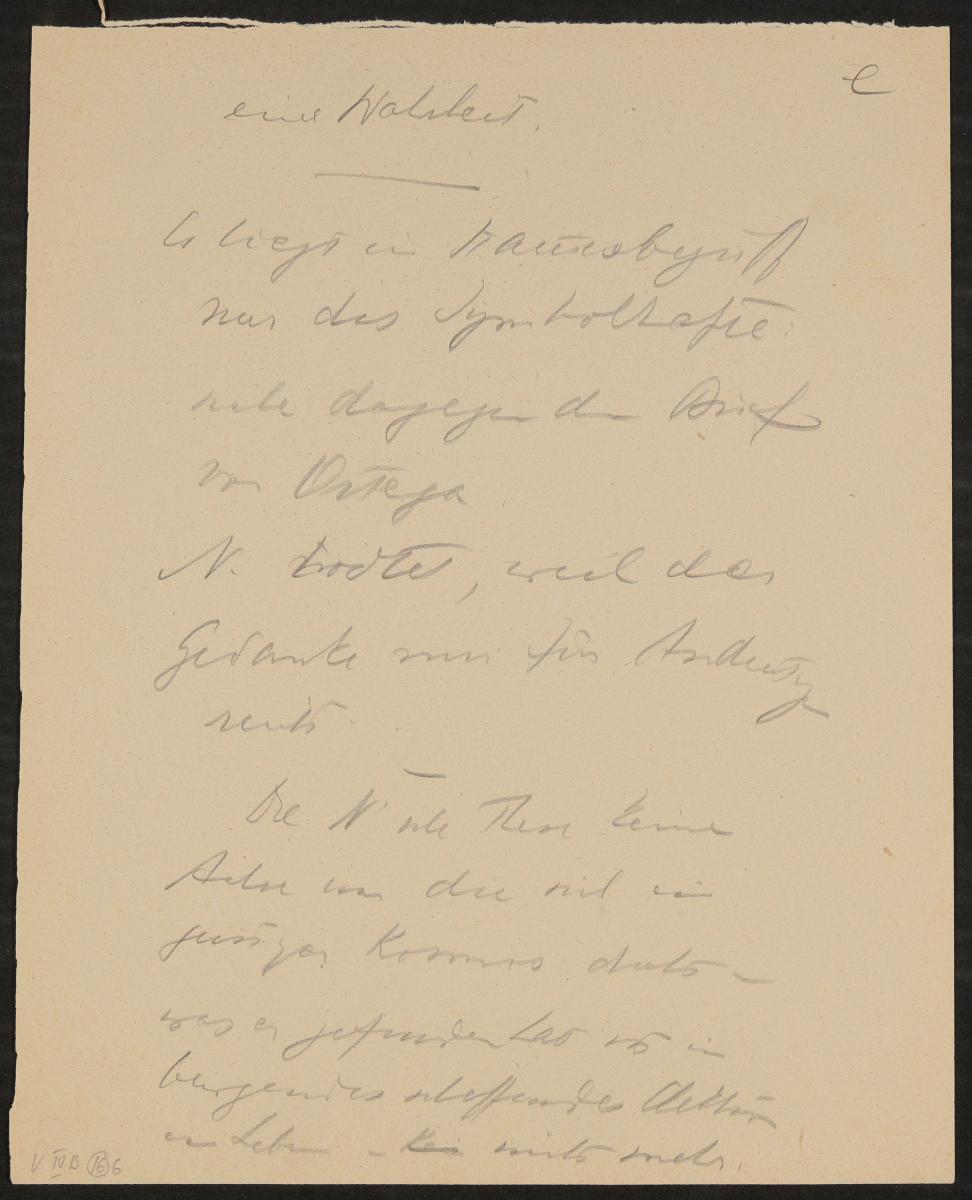 e
eine Wahrheit.
Es liegt im Raumesbegriff
nur das Symbolhafte.
siehe dagegen den Brief
von Ortega
N. , weil der
Gedanke nur für
reicht
Die N'sche These keine
Achse um die sich ein
geistiger Kosmos dreht –
was er gefunden hat ist ein
schaffendes
im Leben – nichts mehr.
V IV B 16 6